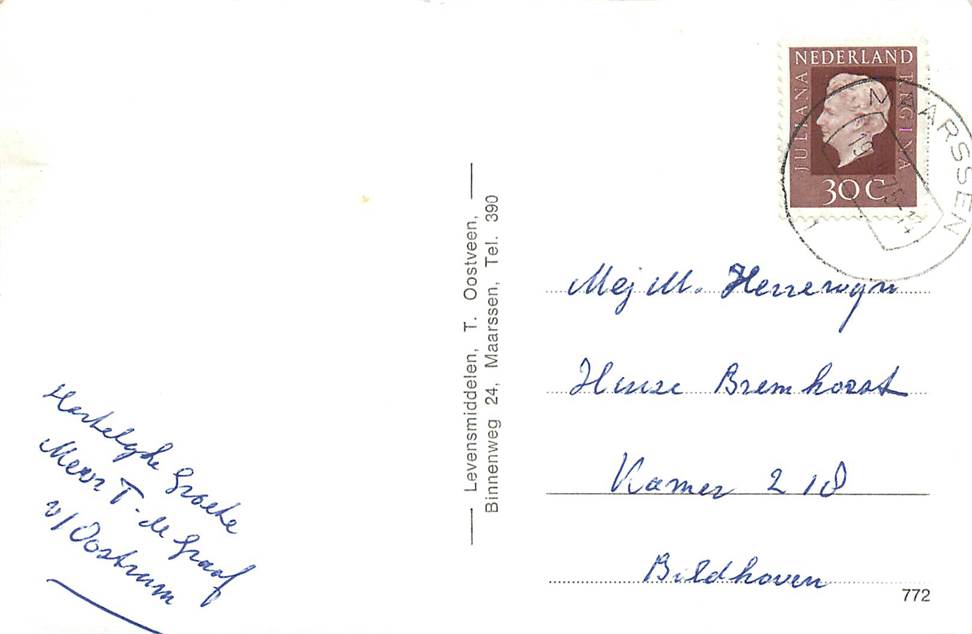 Hartelyke Groete
Mevr T. de Graaf
v/ Oostrum
Levensmiddelen, T. Oostveen,
Binnenweg 24, Maarssen, Tel. 390
NEDERLAND
JULIANA
REGINA
30 C
MAARSSEN
Mej M. Herrewyn
Huize Bremhorst
Kamer 218
Bildhoven
772